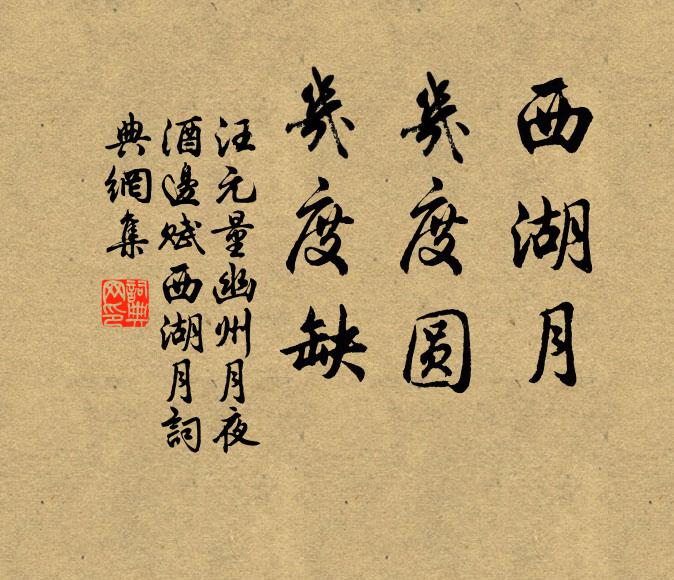 西湖月
幾度圆
幾度缺
汪元量幽州月夜
酒邊賦西湖月詞
典網集
詞典
网印